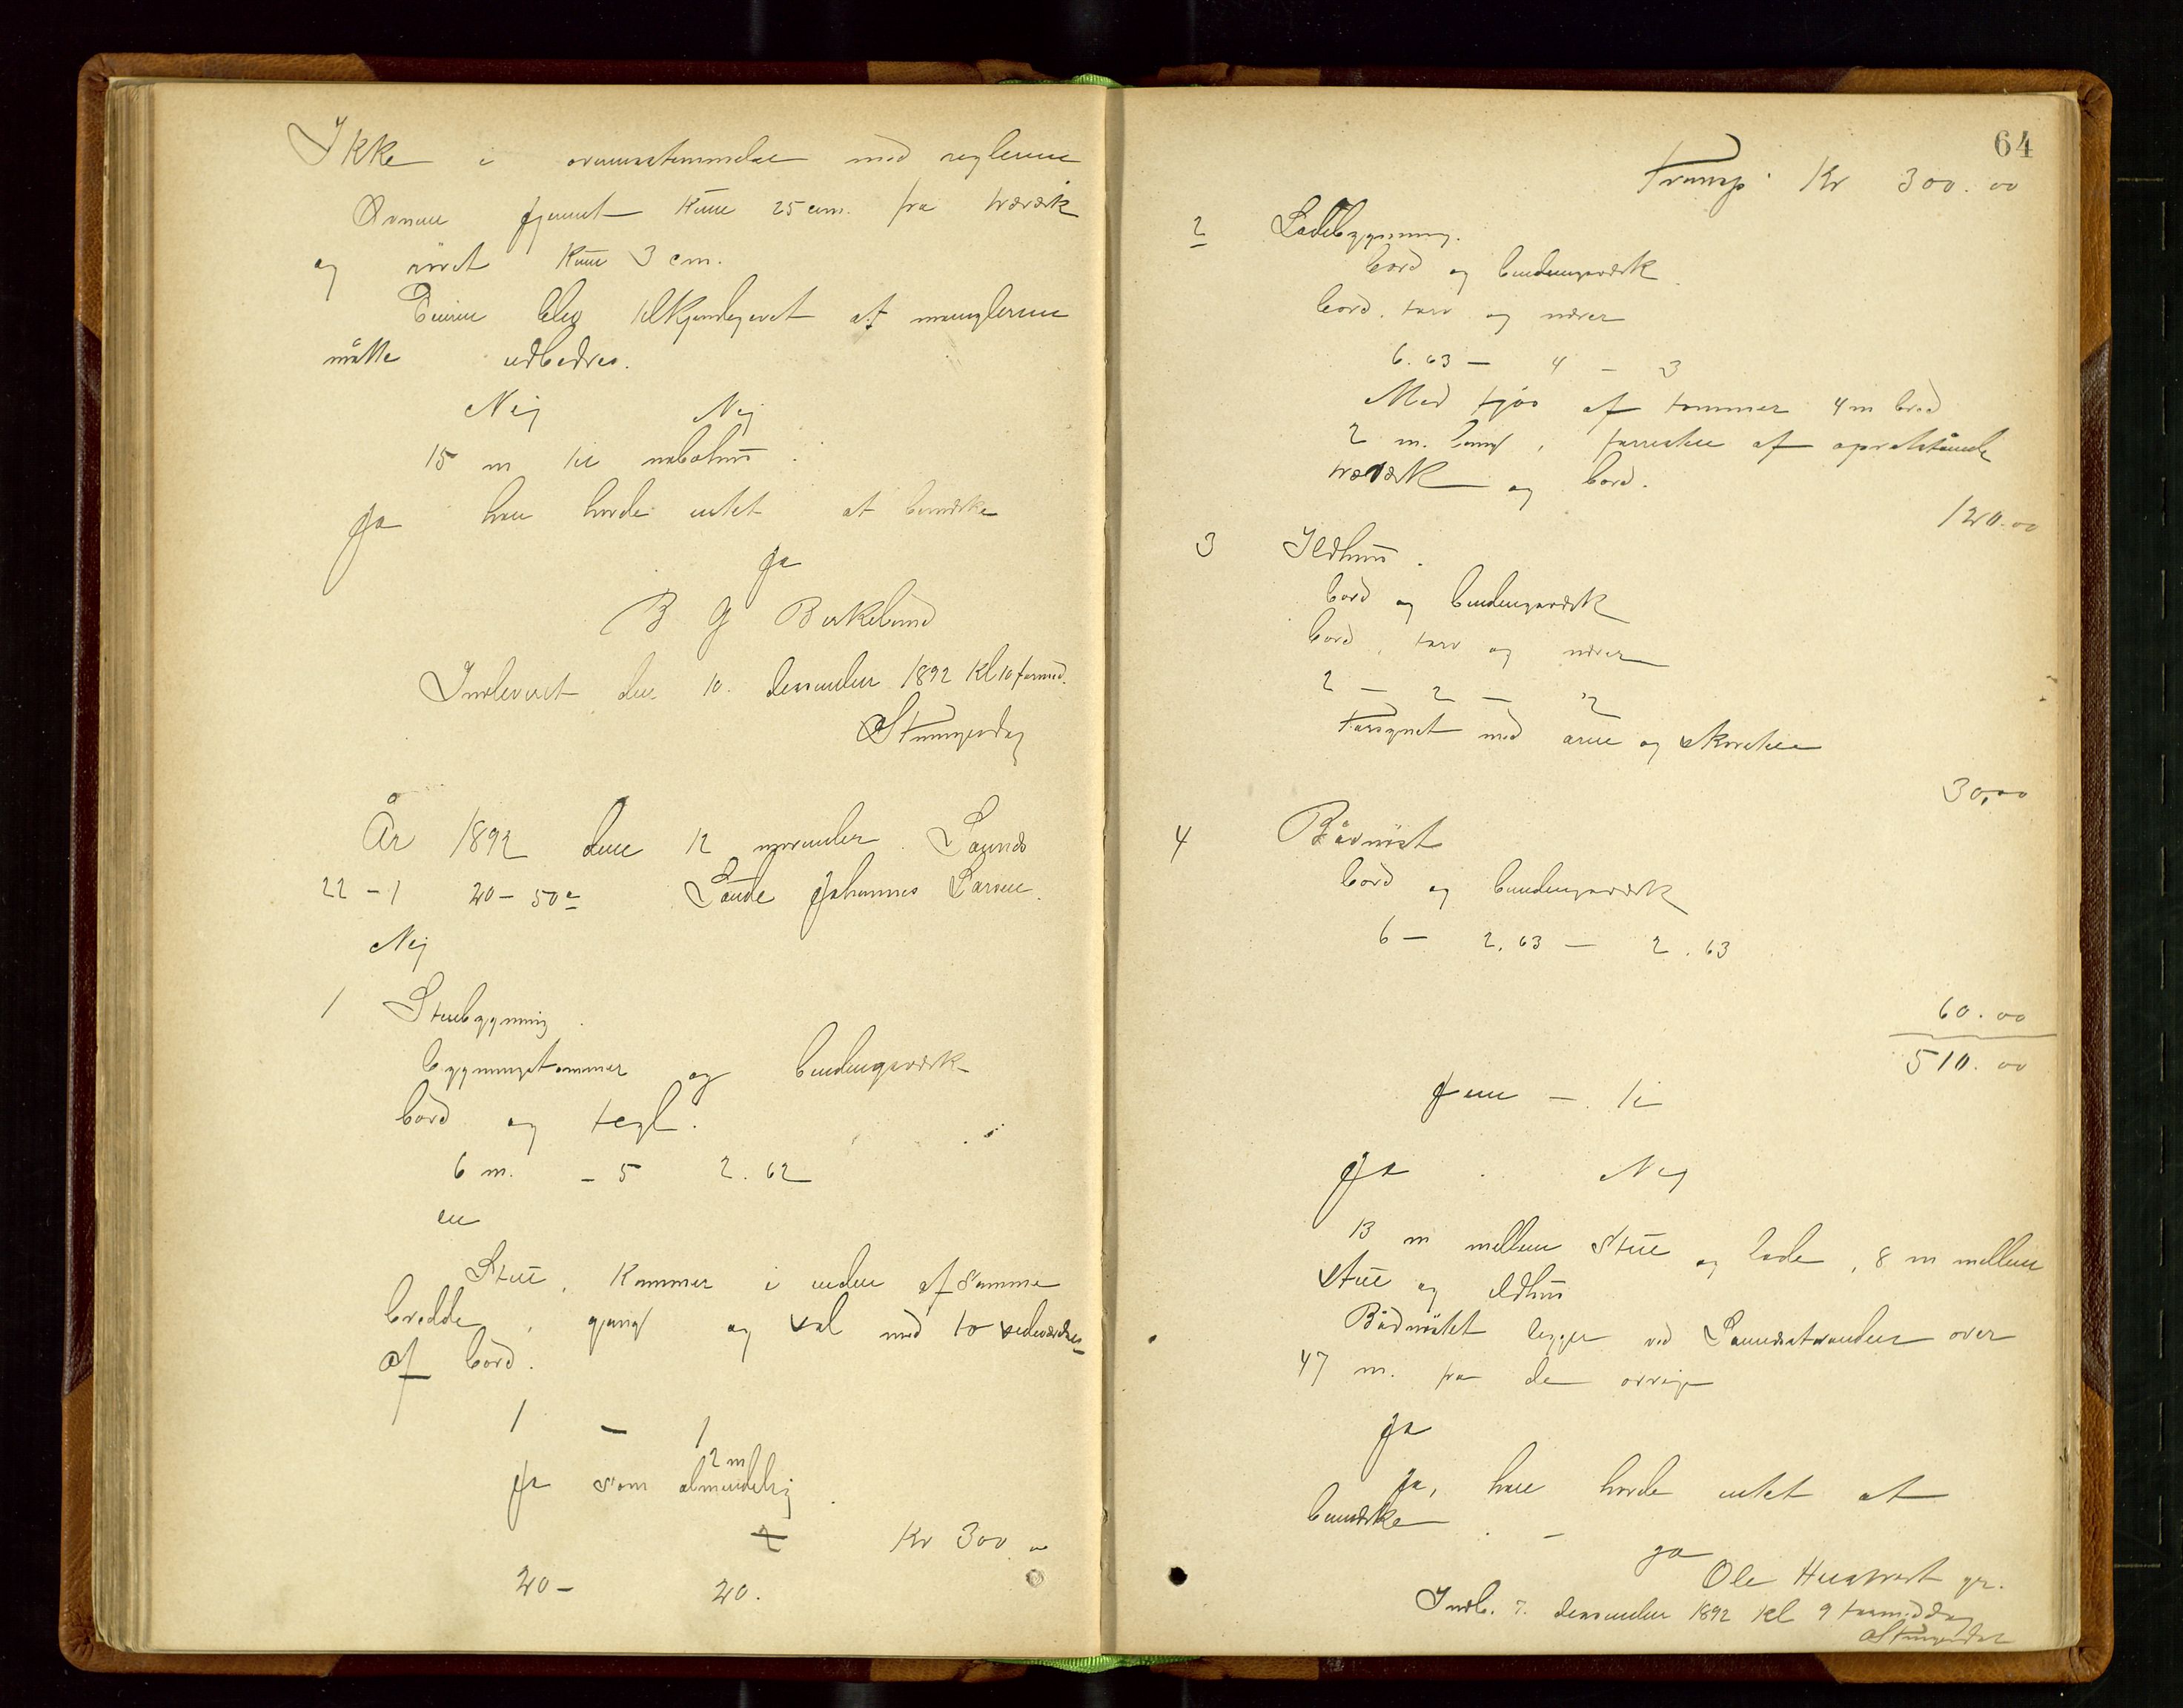 Ikke i overensstemmelse med reglerne
Ovnen fjernet kun 25 cm. fra træværk
og röret kun 3 cm.
Eieren blev tilkjendegivet at manglerne
måtte udbedres.
Nej Nej
15 m til nabohus.
Ja han havde intet at bemærke
Ja
B G Birkeland
Indleveret den 10. desember 1892 Kl 10 formid.
År 1892 den 12 november
22 – 1 20 – 50 Johannes Larsen.
Nej
1 Stuebygning.
bygningstømmer og bindingsværk
bord og tegl.
6 m. – 5 2.62
en
Stue, Kammer i enden af samme
bredde, gang og sval med to
af bord.
1 – 1
2 m
Ja som almindelig.
2 Kr 300
20 – 20.
64
Transp. Kr 300.00
2 Ladebygning.
bord og bindingsværk
bord, torv og næver
6.63 – 4 – 3
Med fjøs af tømmer 4 m bred
2 m. lang, forresten af opretstående
træværk og bord.
120.00
3 Ildhus.
bord og bindingsværk
bord, torv og næver
2 – 2 – 2
Forsynet med arne og skorsten
30,00
4 Bådnöst
bord og bindingsværk
6 – 2.63 – 2.63
60.00
510.00
Fem – ti
Ja. Nej
13 m mellem stue og lade, 8 m mellem
stue og ildhus
Bådnöstet ligger ved over
47 m. fra de övrige
Ja
Ja, han havde intet at
bemærke. –
ja
Ole
Indl. 7. desember 1892 kl 9 formiddag